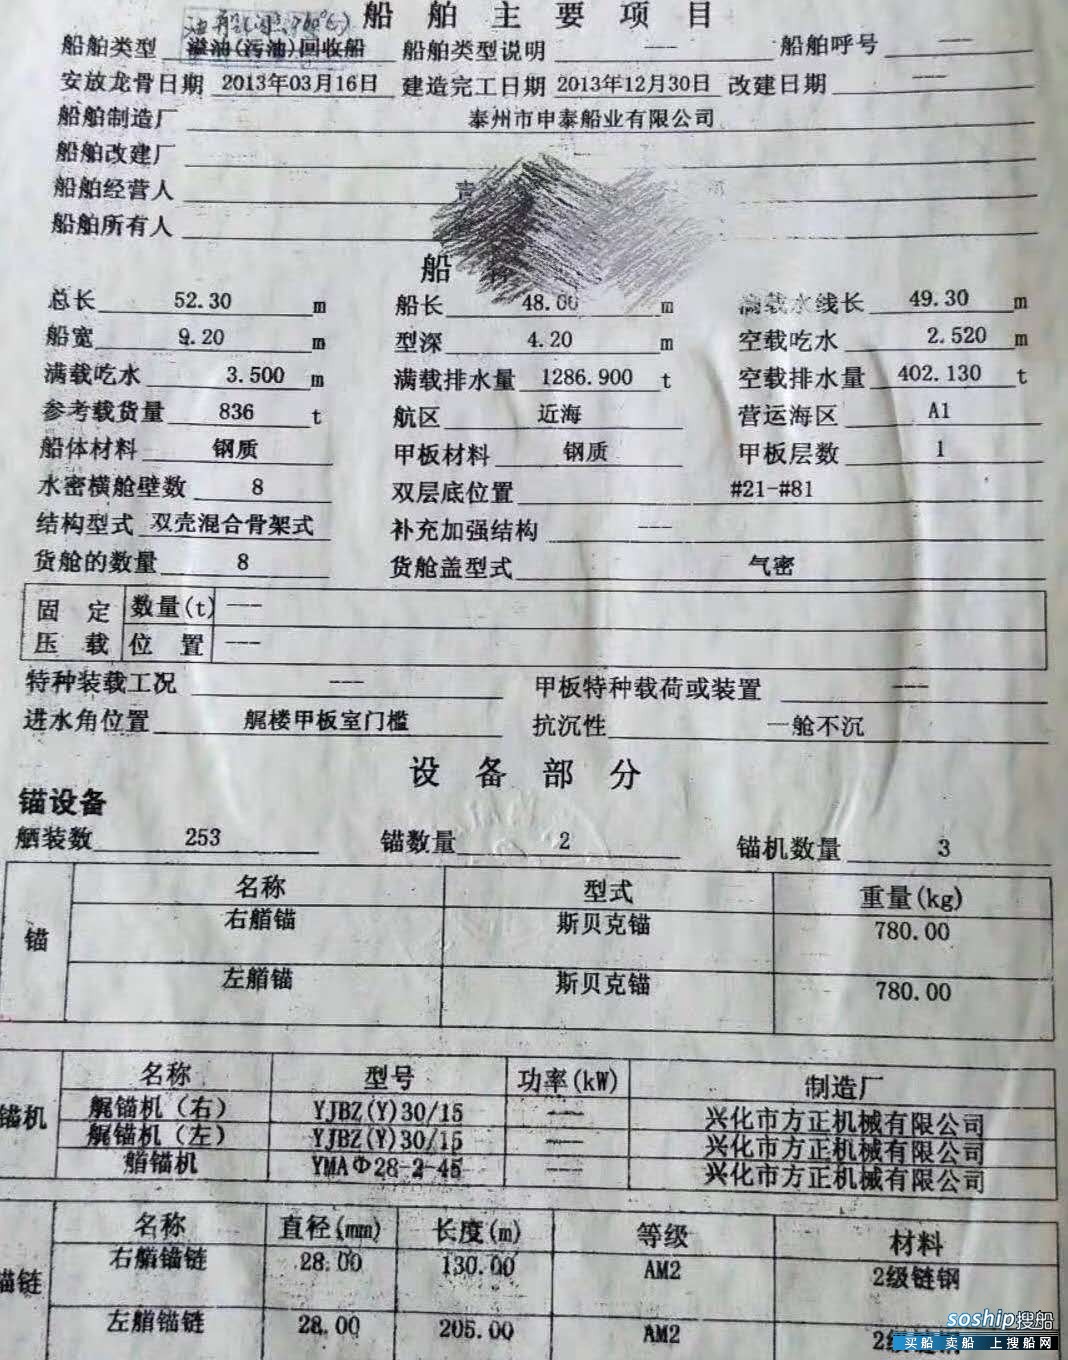 船舶主要项目
船舶类型 溢油(污油)回收船 船舶类型说明 --- 船舶呼号 ---
安放龙骨日期 2013年03月16日 建造完工日期 2013年12月30日 改建日期 ---
船舶制造厂 泰州市申泰船业有限公司
船舶改建厂
船舶经营人
船舶所有人
船
总长 52.30 m 船长 48.00 m 满载水线长 49.30 m
船宽 9.20 m 型深 4.20 m 空载吃水 2.520 m
满载吃水 3.500 m 满载排水量 1286.900 t 空载排水量 402.130 t
参考载货量 836 t 航区 近海 营运海区 A1
船体材料 钢质 甲板材料 钢质 甲板层数 1
水密横舱壁数 8 双层底位置 #21-#81
结构型式 双壳混合骨架式 补充加强结构 ---
货舱的数量 8 货舱盖型式 气密
固定压载 数量(t) ---
位置 ---
特种装载工况 --- 甲板特种载荷或装置 ---
进水角位置 艉楼甲板室门槛 抗沉性 一舱不沉
设备部分
锚设备
舾装数 253 锚数量 2 锚机数量 3
锚 名称 型式 重量(kg)
右艏锚 斯贝克锚 780.00
左艏锚 斯贝克锚 780.00
锚机 名称 型号 功率(kW) 制造厂
艉锚机（右） YJBZ(Y)30/15 --- 兴化市方正机械有限公司
艉锚机（左） YJBZ(Y)30/15 --- 兴化市方正机械有限公司
艏锚机 YMAΦ28-2-45 --- 兴化市方正机械有限公司
锚链 名称 直径(mm) 长度(m) 等级 材料
右艏锚链 28.00 130.00 AM2 2级链钢
左艏锚链 28.00 205.00 AM2 2级链钢
soship搜船
买船 卖船 上搜船网